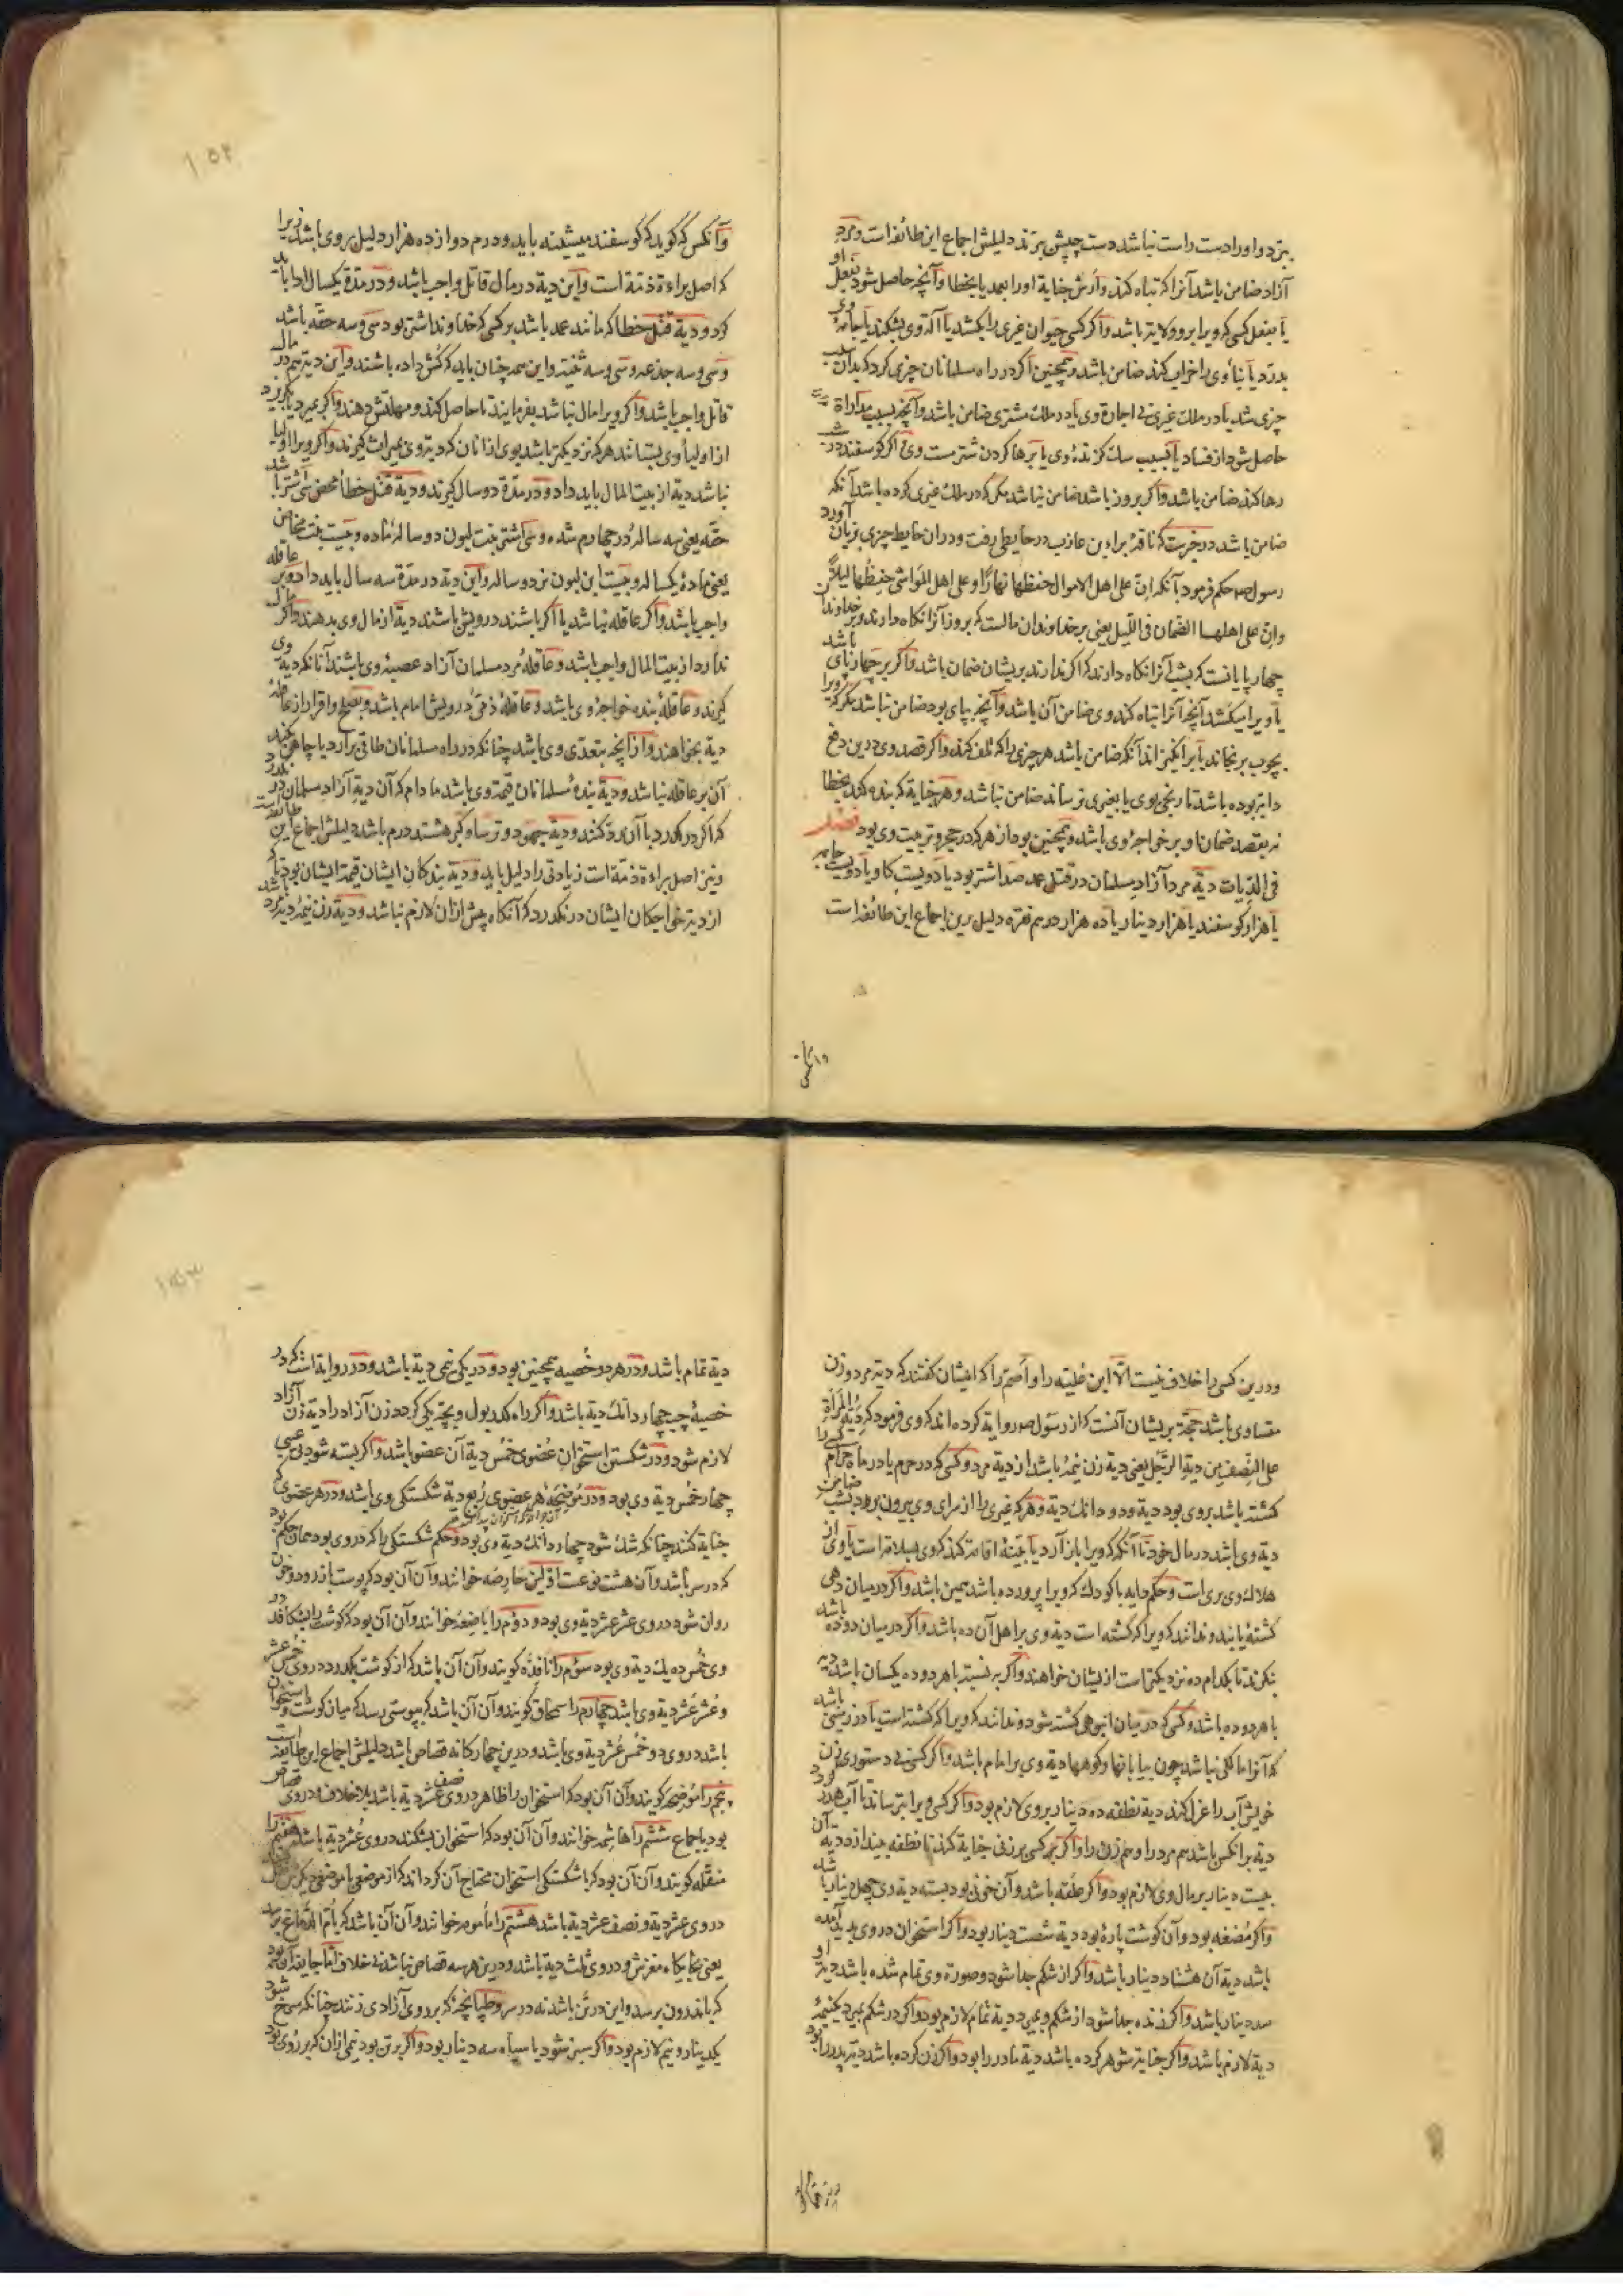 ببرد و او را دست راست نباشد دست چپش ببرند دلیلش اجماع این طائفه است و مرد
آزاد ضامن باشد آنرا که تباه کند و ارش جنایة او را بعمد یا بخطا و آنچه حاصل شود بفعل او
یا بفعل کسی که ویرا برو ولایتر باشد و اگر کسی حیوان غیری را بکشد یا آلة وی بشکند یا جامهٔ وی
بدرد یا بناء وی را خراب کند ضامن باشد و همچنین اگر در راه مسلمانان چیزی کرد که بدان سبب
چیزی شد یا در ملک غیری بی اجازة وی یا در ملک مشتری ضامن باشد و آنچه بسبب مداراة
حاصل شود از فساد یا بسبب سک کزندهٔ وی یا برها کردن شتر مست وی اگر کوسفند در شب
رها کند ضامن باشد و اگر بروز باشد ضامن نباشد مکر که در ملک غیری کرده باشد آنکه
ضامن باشد در خبرست که ناقهٔ براء بن عازب در حایطی رفت و در ان حایط چیزی بزیان آورد
رسول ص حکم فرمود بآنکه ان علی اهل الاموال حفظها نهارًا و علی اهل المواشی حفظها لیلاً
وان علی اهلها الضمان فی اللیل یعنی بر خداوندان مالست که بروز آنرا نکاه دارند و بر خداوندان
چهارپایانست که بشب آنرا نکاه دارند که اگر ندارند بریشان ضمان باشد و اگر بر چهارپای باشد
یا ویرا میکشد آنچه آنرا تباه کند وی ضامن آن باشد و آنچه بپای بود ضامن نباشد مکر که ویرا
بچوب برنجاند یا برانکیزاند آنکه ضامن باشد هر چیزی را که تلف کند و اگر قصد وی درین دفع
دابه بوده باشد تا رنجی بوی یا بغیری نرساند ضامن نباشد و هر جنایة که بنده کند بخطا
نه بقصد ضمان او بر خواجهٔ وی باشد و همچنین بود از هر که در حجر و تربیت وی بود فصل
فی الدیات دیة مرد آزاد مسلمان در قتل عمد صد اشتر بود یا دویست کاو یا دویست جامه
یا هزار کوسفند یا هزار دینار یا ده هزار درهم نقره دلیل برین اجماع این طائفه است
وآنکس که کوید که کوسفند بیشینه باید و درم دوازده هزار دلیل بر وی باشد زیرا
که اصل براءة ذمة است و این دیة در مال قاتل واجب باشد و در مدة یکسال ادا باید
کرد و دیة قتل خطا که مانند عمد باشد بر کسی که خداوند اشتر بود سی و سه حقه باشد
و سی و سه جذعه و سی و سه ثنیه و این همه چنان باید که کشن داده باشند و این دیة هم در مال
قاتل واجب باشد و اگر ویرا مال نباشد بفرمایند تا حاصل کند و مهلتش دهند و اگر بمیرد یا بکریزد
از اولیاء وی بستانند هر که نزدیکتر باشد بوی از انان که دیة وی بمیراث کیرند و اگر ویرا اولیا
نباشد دیة از بیت المال باید داد و در مدة دو سال کیرند و دیة قتل خطاء محض سی شتر باشد
حقه یعنی سه ساله در چهارم شده و سی اشتر بنت لبون دو سالهٔ ماده و بیست بنت مخاض
یعنی مادهٔ یکساله و بیست ابن لبون نر دو ساله و این دیة در مدة سه سال باید داد و بر عاقله
واجب باشد و اگر عاقله نباشد یا اگر باشند درویش باشند دیة از مال وی بدهند و اگر مال
ندارد از بیت المال واجب باشد و عاقلهٔ مرد مسلمان آزاد عصبهٔ وی باشند آنانکه دیة وی
کیرند و عاقلهٔ بنده خواجهٔ وی باشد و عاقلهٔ ذمی درویش امام باشد و بصلح و اقرار از عاقله
دیة نخواهند و از آنچه بتعدی وی باشد چنانکه در راه مسلمانان طاقی برآرد یا چاهی بکند
آن بر عاقله نباشد و دیة بندهٔ مسلمانان قیمة وی باشد مادام که آن دیة آزاد مسلمان درنکذرد
که اگر درکذرد با آن رد کنند و دیة جهود و ترسا و کبر هشتصد درم باشد دلیلش اجماع این طائفه است
و نیز اصل براءة ذمة است زیادتی را دلیل باید و دیة بندکان ایشان قیمة ایشان بود تا
از دیة خواجکان ایشان درنکذرد که آنکاه بیش از ان لازم نباشد و دیة زن نیمهٔ دیة مرد باشد
ودرین کسی را خلاف نیست الا ابن علیّه را و اصم را که ایشان کفتند که دیة مرد و زن
متساوی باشد حجة بریشان آنست که از رسول ص روایة کرده اند که وی فرمود که دیة المراة
علی النصف من دیة الرجل یعنی دیة زن نیمه باشد از دیة مرد و کسی که در حرم یا در ماه حرام کسی را
کشته باشد بر وی بود دیة و دو دانک دیة و هر که غیری را از سرای وی بیرون برد بشب ضامن
دیة وی باشد در مال خود تا آنکه که ویرا باز آرد یا بینه اقامة کند که وی بسلامت است یا وی از
هلاک وی بری است و حکم دایه با کودک که ویرا پرورده باشد همین باشد و اگر در میان دهی
کشتهٔ یابند و ندانند که ویرا که کشته است دیة وی بر اهل آن ده باشد و اگر در میان دو ده باشد
بنکرند تا بکدام ده نزدیکتر است از یشان خواهند و اگر به نسبة با هر دو ده یکسان باشد دیه
با هر دو ده باشد و کسی که در میان انبوهی کشته شود و ندانند که ویرا که کشته است یا در زمینی باشد
که آنرا مالکی نباشد چون بیابانها و کوهها دیة وی بر امام باشد و اگر کسی بی دستوری زن
خویش آب را عزل کند دیة نطفه ده دینار بر وی لازم بود و اگر کسی ویرا بترساند تا آب هدر
دیة بر انکس باشد هم مرد را و هم زن را و اگر کسی بر زنی جنایة کند تا نطفه بیندازد دیة آن
بیست دینار بر مال وی لازم بود و اگر علقه باشد و آن خونی بود بسته دیة وی چهل دینار باشد
و اگر مضغه بود و آن کوشت پارهٔ بود دیة شصت دینار بود و اگر استخوان در وی پدید آمده
باشد دیة آن هشتاد دینار باشد و اگر از شکم جدا شود و صورة وی تمام شده باشد دیة او
صد دینار باشد و اگر زنده جدا شود از شکم و بمیرد دیة تمام لازم بود و اگر در شکم بمیرد یکنیمهٔ
دیة لازم باشد و اگر جنایة شوهر کرده باشد دیة مادر را بود و اگر زن کرده باشد دیة پدر را بود
دیة تمام باشد و در هر دو خصیه همچنین بود و در یکی نیمی دیة باشد و در روایة است که در
خصیهٔ چپ چهار دانک دیة باشد و اگر راه کذر بول و بچه یکی کردد زن آزاد را دیة زن آزاد
لازم شود و در شکستن استخوان عضوی خمس دیة آن عضو باشد و اگر بسته شود بی عیبی
چهار خمس دیة وی بود و در موضحهٔ هر عضوی ربع دیة شکستکی وی باشد و در هر عضوی که
جنایة کنند چنانکه شل شود چهار دانک دیة وی بود و حکم شکستکی را که در روی بود همان حکم بود
که در سر باشد و آن هشت نوعست اولین حارصه خوانند و آن آن بود که پوست بازرود و خون
روان شود در وی عشر عشر دیة وی بود و دوم را باضعه خوانند و آن آن بود که کوشت را بشکافد در
وی خمس ده یک دیة وی بود سوم را نافذه کویند و آن آن باشد که از کوشت بکذرد در وی خمس عشر
و عشر عشر دیة وی باشد چهارم را سمحاق کویند و آن آن باشد که بپوستی رسد که میان کوشت و استخوان
باشد در وی دو خمس عشر دیة وی باشد و درین چهارکانه قصاص باشد دلیلش اجماع این طایفه است
پنجم را موضحه کویند و آن آن بود که استخوان را ظاهر در وی نصف عشر دیة باشد بلا خلاف و در وی قصاص
بود باجماع ششم را هاشمه خوانند و آن آن بود که استخوان بشکند در وی عشر دیة باشد هفتم را
منقله کویند و آن آن بود که با شکستکی استخوان محتاج آن کرداند که از موضعی با موضعی دیکر
در وی عشر دیة و نصف عشر دیة باشد هشتم را مأمومه خوانند و آن آن باشد که بام الدماغ برسد
یعنی بجایکاه مغزش و در وی ثلث دیة باشد و درین هر سه قصاص نباشد بی خلاف اما جایفه آن بود
که باندرون برسد و این در تن باشد نه در سر و طپانچهٔ که بر روی آزادی زنند چنانکه سرخ شود
یکدینار و نیم لازم بود و اگر سبز شود یا سیاه سه دینار بود و اگر بر تن بود نیمی از ان که بر روی بود